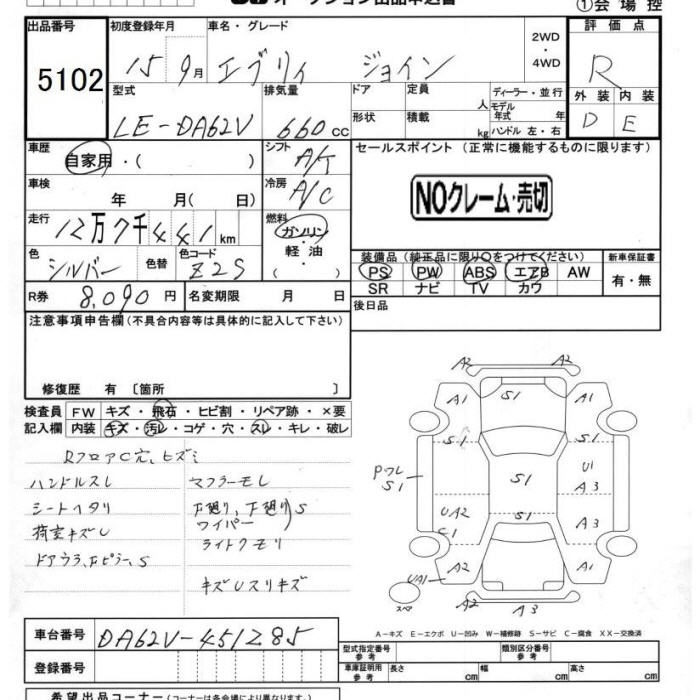 オークション出品申込書
①会場控
出品番号
5102
初度登録年月
15 9月
車名・グレード
エブリィ ジョイン
2WD・4WD
評価点
R
外装 内装
D E
型式
LE-DA62V
排気量
660 cc
ドア
形状
定員 人
積載 kg
ディーラー・並行
モデル年式 年
ハンドル 左・右
車歴
自家用・( )
シフト
A/T
セールスポイント (正常に機能するものに限ります)
NOクレーム・売切
車検
年 月( 日)
冷房
A/C
走行
12万7千441km
燃料
ガソリン・軽油
( )
色
シルバー
色替
色コード
Z2S
装備品 (純正品に限り○をつけてください)
PS PW ABS エアB AW
SR ナビ TV カワ
新車保証書
有・無
R券 8,090 円
名変期限 月 日
後日品
注意事項申告欄 (不具合内容等は具体的に記入して下さい)
修復歴 有 〔箇所 〕
検査員記入欄
FW キズ・飛石・ヒビ割・リペア跡・×要
内装 キズ・汚レ・コゲ・穴・スレ・キレ・破レ
RフロアC穴、ヒズミ
ハンドルスレ
マフラーモレ
シートヘタリ
下廻り、下廻りS
ワイパー
荷室キズU
ライトクモリ
ドアウラ、Fピラー、S
キズUスリキズ
A2 A2
A1 S1 A1
S1 S1
PワレS1
S1
U1
A3
UA2
C1
S1
A3
UA1 A2 A1
A2 A3
スペア
A－キズ E－エクボ U－凹み W－補修跡 S－サビ C－腐食 XX－交換済
車台番号 DA62V-451285
登録番号
型式指定番号 参考
類別区分番号 参考
車庫証明用 参考 長さ cm 幅 cm 高さ cm
希望出品コーナー (コーナーは各会場により異なります。)